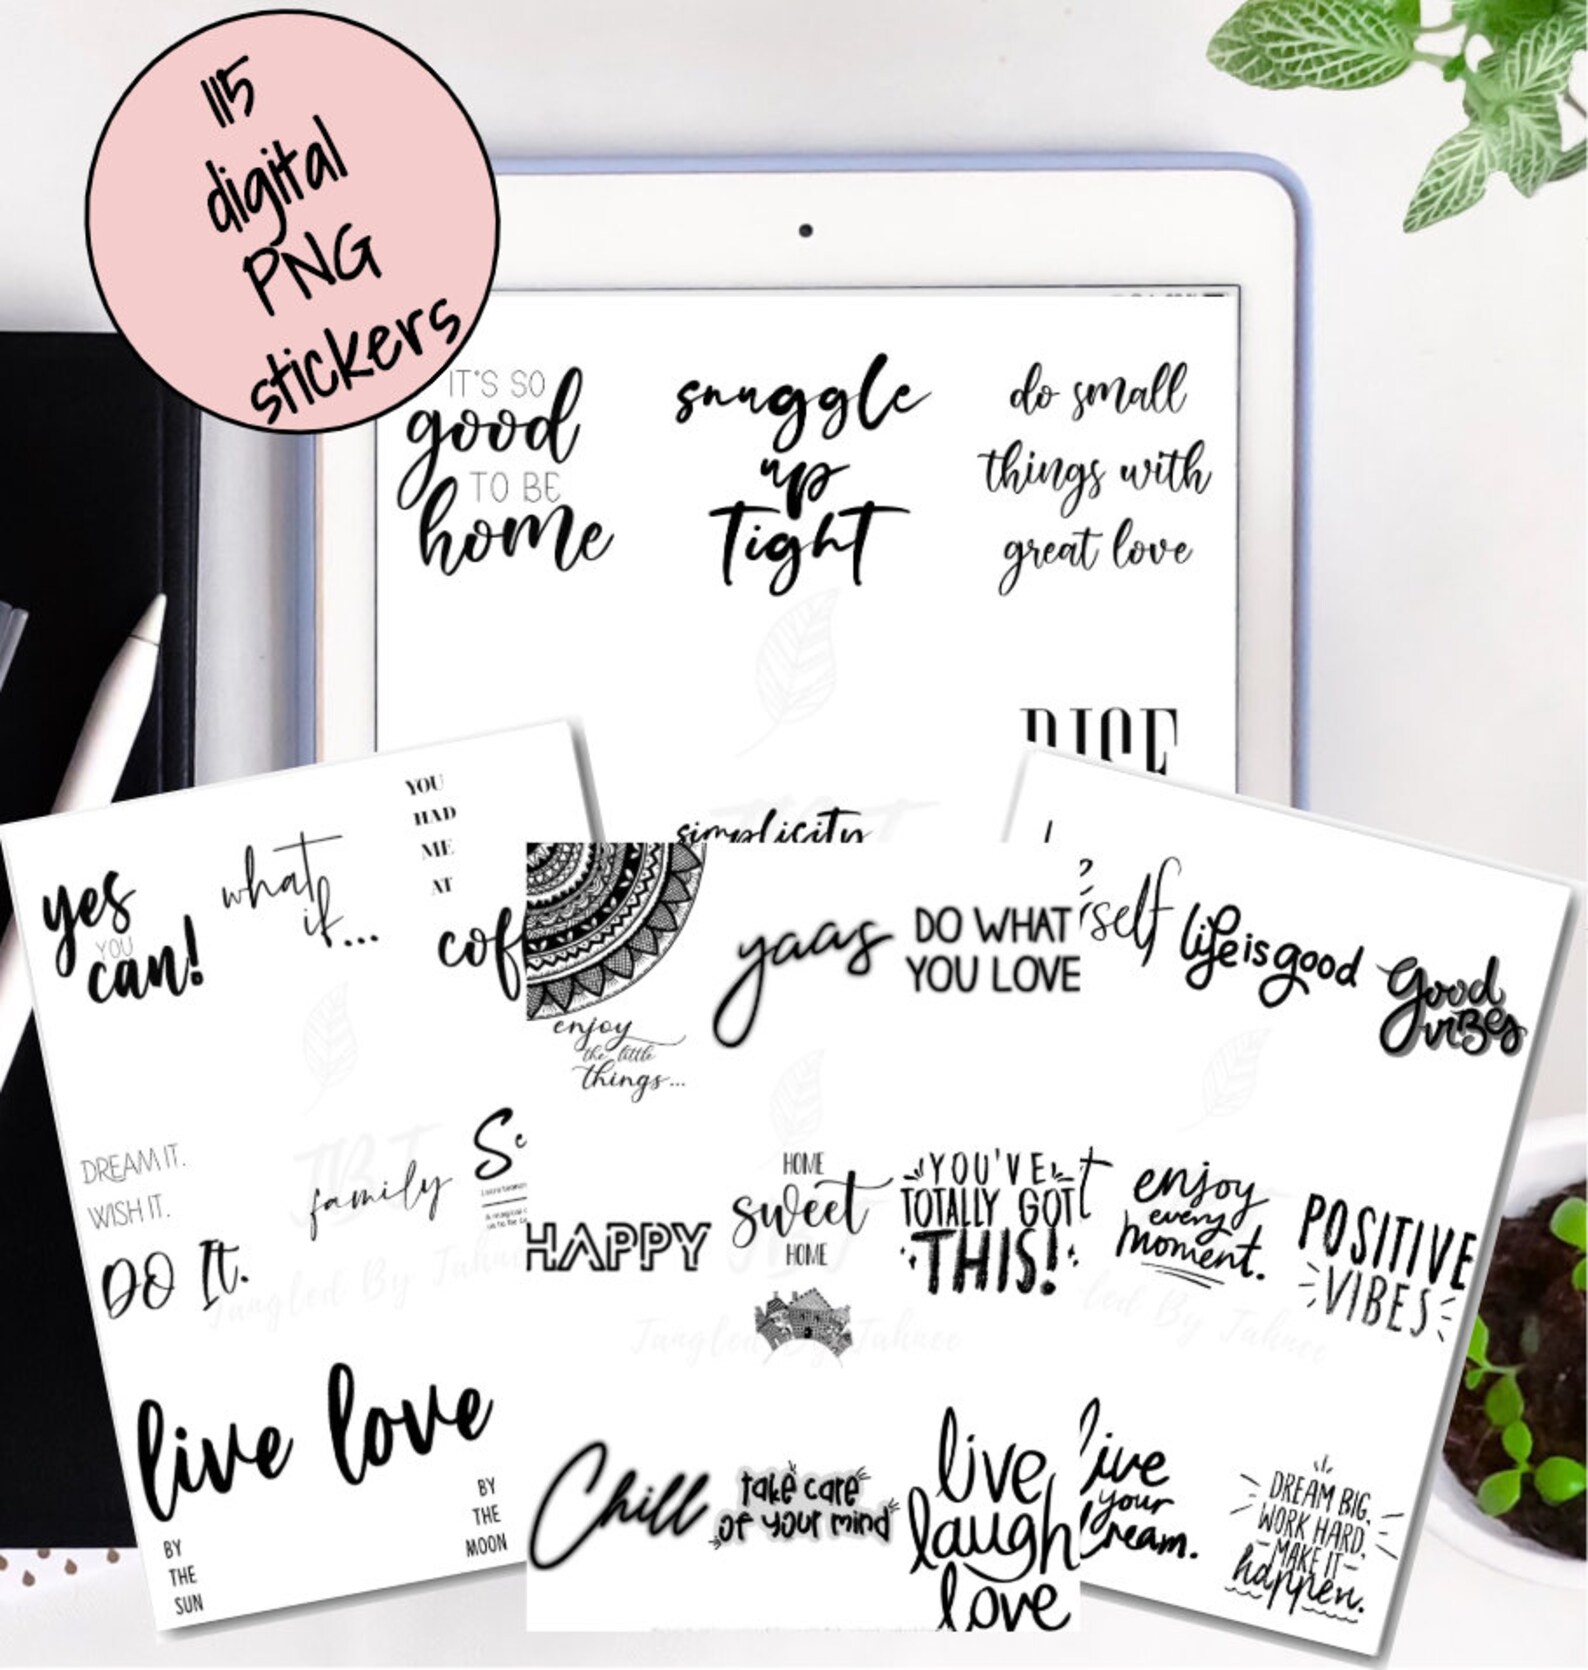 115
digital
PNG
stickers
IT'S SO
good
TO BE
home
snuggle
up
Tight
do small
things with
great love
RISE
simplicity
yes
YOU
can!
what
if...
YOU
HAD
ME
AT
cof
DREAM IT.
WISH IT.
DO It.
family
live love
BY
THE
SUN
BY
THE
MOON
enjoy
the little
things...
yaas
DO WHAT
YOU LOVE
HAPPY
HOME
sweet
HOME
YOU'VE
TOTALLY GOT
THIS!
Chill
take care
of your mind
live
laugh
love
self
life is good
good
vibes
enjoy
every
moment.
POSITIVE
VIBES
live
your
dream.
DREAM BIG,
WORK HARD,
MAKE IT
happen.
JBT
Tangled By Tahnee